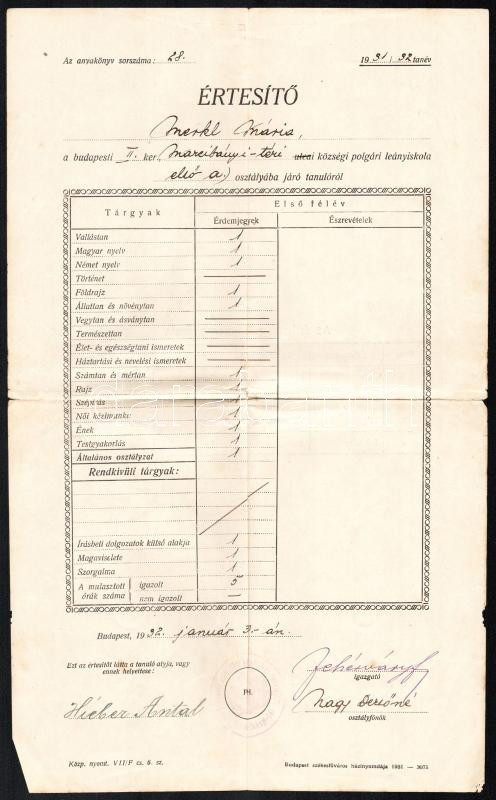 Az anyakönyv sorszáma: 28. 1931/32 tanév
ÉRTESÍTŐ
Merkl Mária,
a budapesti II. ker. Marcibányi-téri utcai községi polgári leányiskola
első a) osztályába járó tanulóról
Tárgyak Első félév
Érdemjegyek Észrevételek
Vallástan 1
Magyar nyelv 1
Német nyelv 1
Történet —
Földrajz 1
Állattan és növénytan 1
Vegytan és ásványtan —
Természettan —
Élet- és egészségtani ismeretek —
Háztartási és nevelési ismeretek —
Számtan és mértan 1
Rajz 1
Szépírás 1
Női kézimunka 1
Ének 1
Testgyakorlás 1
Általános osztályzat 1
Rendkívüli tárgyak:
Írásbeli dolgozatok külső alakja 1
Magaviselete 1
Szorgalma 1
A mulasztott órák száma igazolt 5
nem igazolt —
Budapest, 1932. január 3.-án.
Ezt az értesítőt látta a tanuló atyja, vagy
ennek helyettese:
igazgató
PH.
Hieber Antal
Nagy Dezsőné
osztályfőnök
Közp. nyomt. VII/F cs. 6. sz. Budapest székesfőváros házinyomdája 1931 — 3075